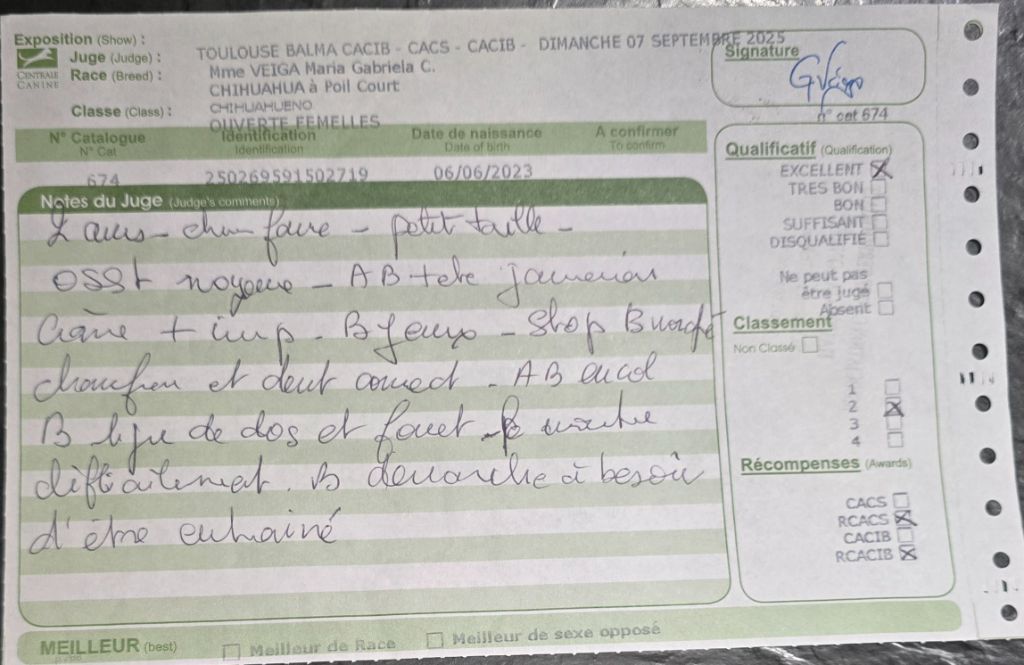 Exposition (Show) : TOULOUSE BALMA CACIB - CACS - CACIB - DIMANCHE 07 SEPTEMBRE 2025
Juge (Judge) : Mme VEIGA Maria Gabriela C.
Race (Breed) : CHIHUAHUA à Poil Court
CHIHUAHUENO
Classe (Class) : OUVERTE FEMELLES
CENTRALE CANINE
Signature
n° cat 674
N° Catalogue Identification Date de naissance A confirmer
N° Cat Identification Date of birth To confirm
674 250269591502719 06/06/2023
Notes du Juge (Judge's comments)
2 ans - - petit taille -
osst moyenne - AB tete
Crâne + - B yeux - Stop B
et dent correct - AB encol
B ligne de dos et fouet -
. B demarche à besoin
d'être entrainé
Qualificatif (Qualification)
EXCELLENT
TRES BON
BON
SUFFISANT
DISQUALIFIÉ
Ne peut pas
être jugé
Absent
Classement
Non Classé
1
2
3
4
Récompenses (Awards)
CACS
RCACS
CACIB
RCACIB
MEILLEUR (best) Meilleur de Race Meilleur de sexe opposé